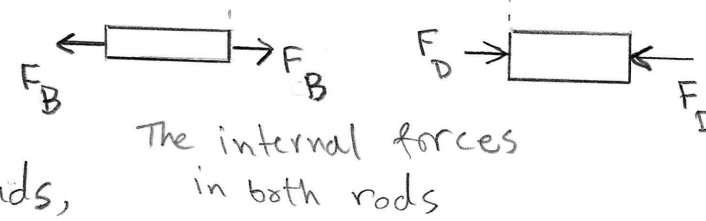 F_B F_B F_D
The internal forces
in both rods